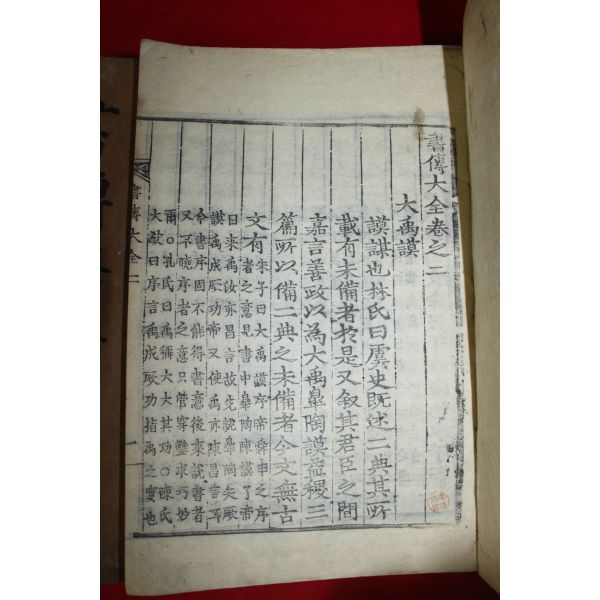 書傳大全卷之二
大禹謨
謨謀也林氏曰虞史旣述二典其所
載有未備者於是又叙其君臣之間
嘉言善政以爲大禹皐陶謨益稷三
篇所以備二典之未備者今文無古
文有
朱子曰大禹謨序帝舜申之序
者之意見書中皐陶陳謨了帝
曰來禹汝亦昌言故先說皐陶矢厥
謨禹成厥功帝又使禹亦陳昌言耳
今書序固不能得書意後來說書者
又不曉序者之意只管穿鑿求巧妙
爾○孔氏曰禹稱大大其功○陳氏
大猷曰序言禹成厥功括禹之實也
書傳大全二
一